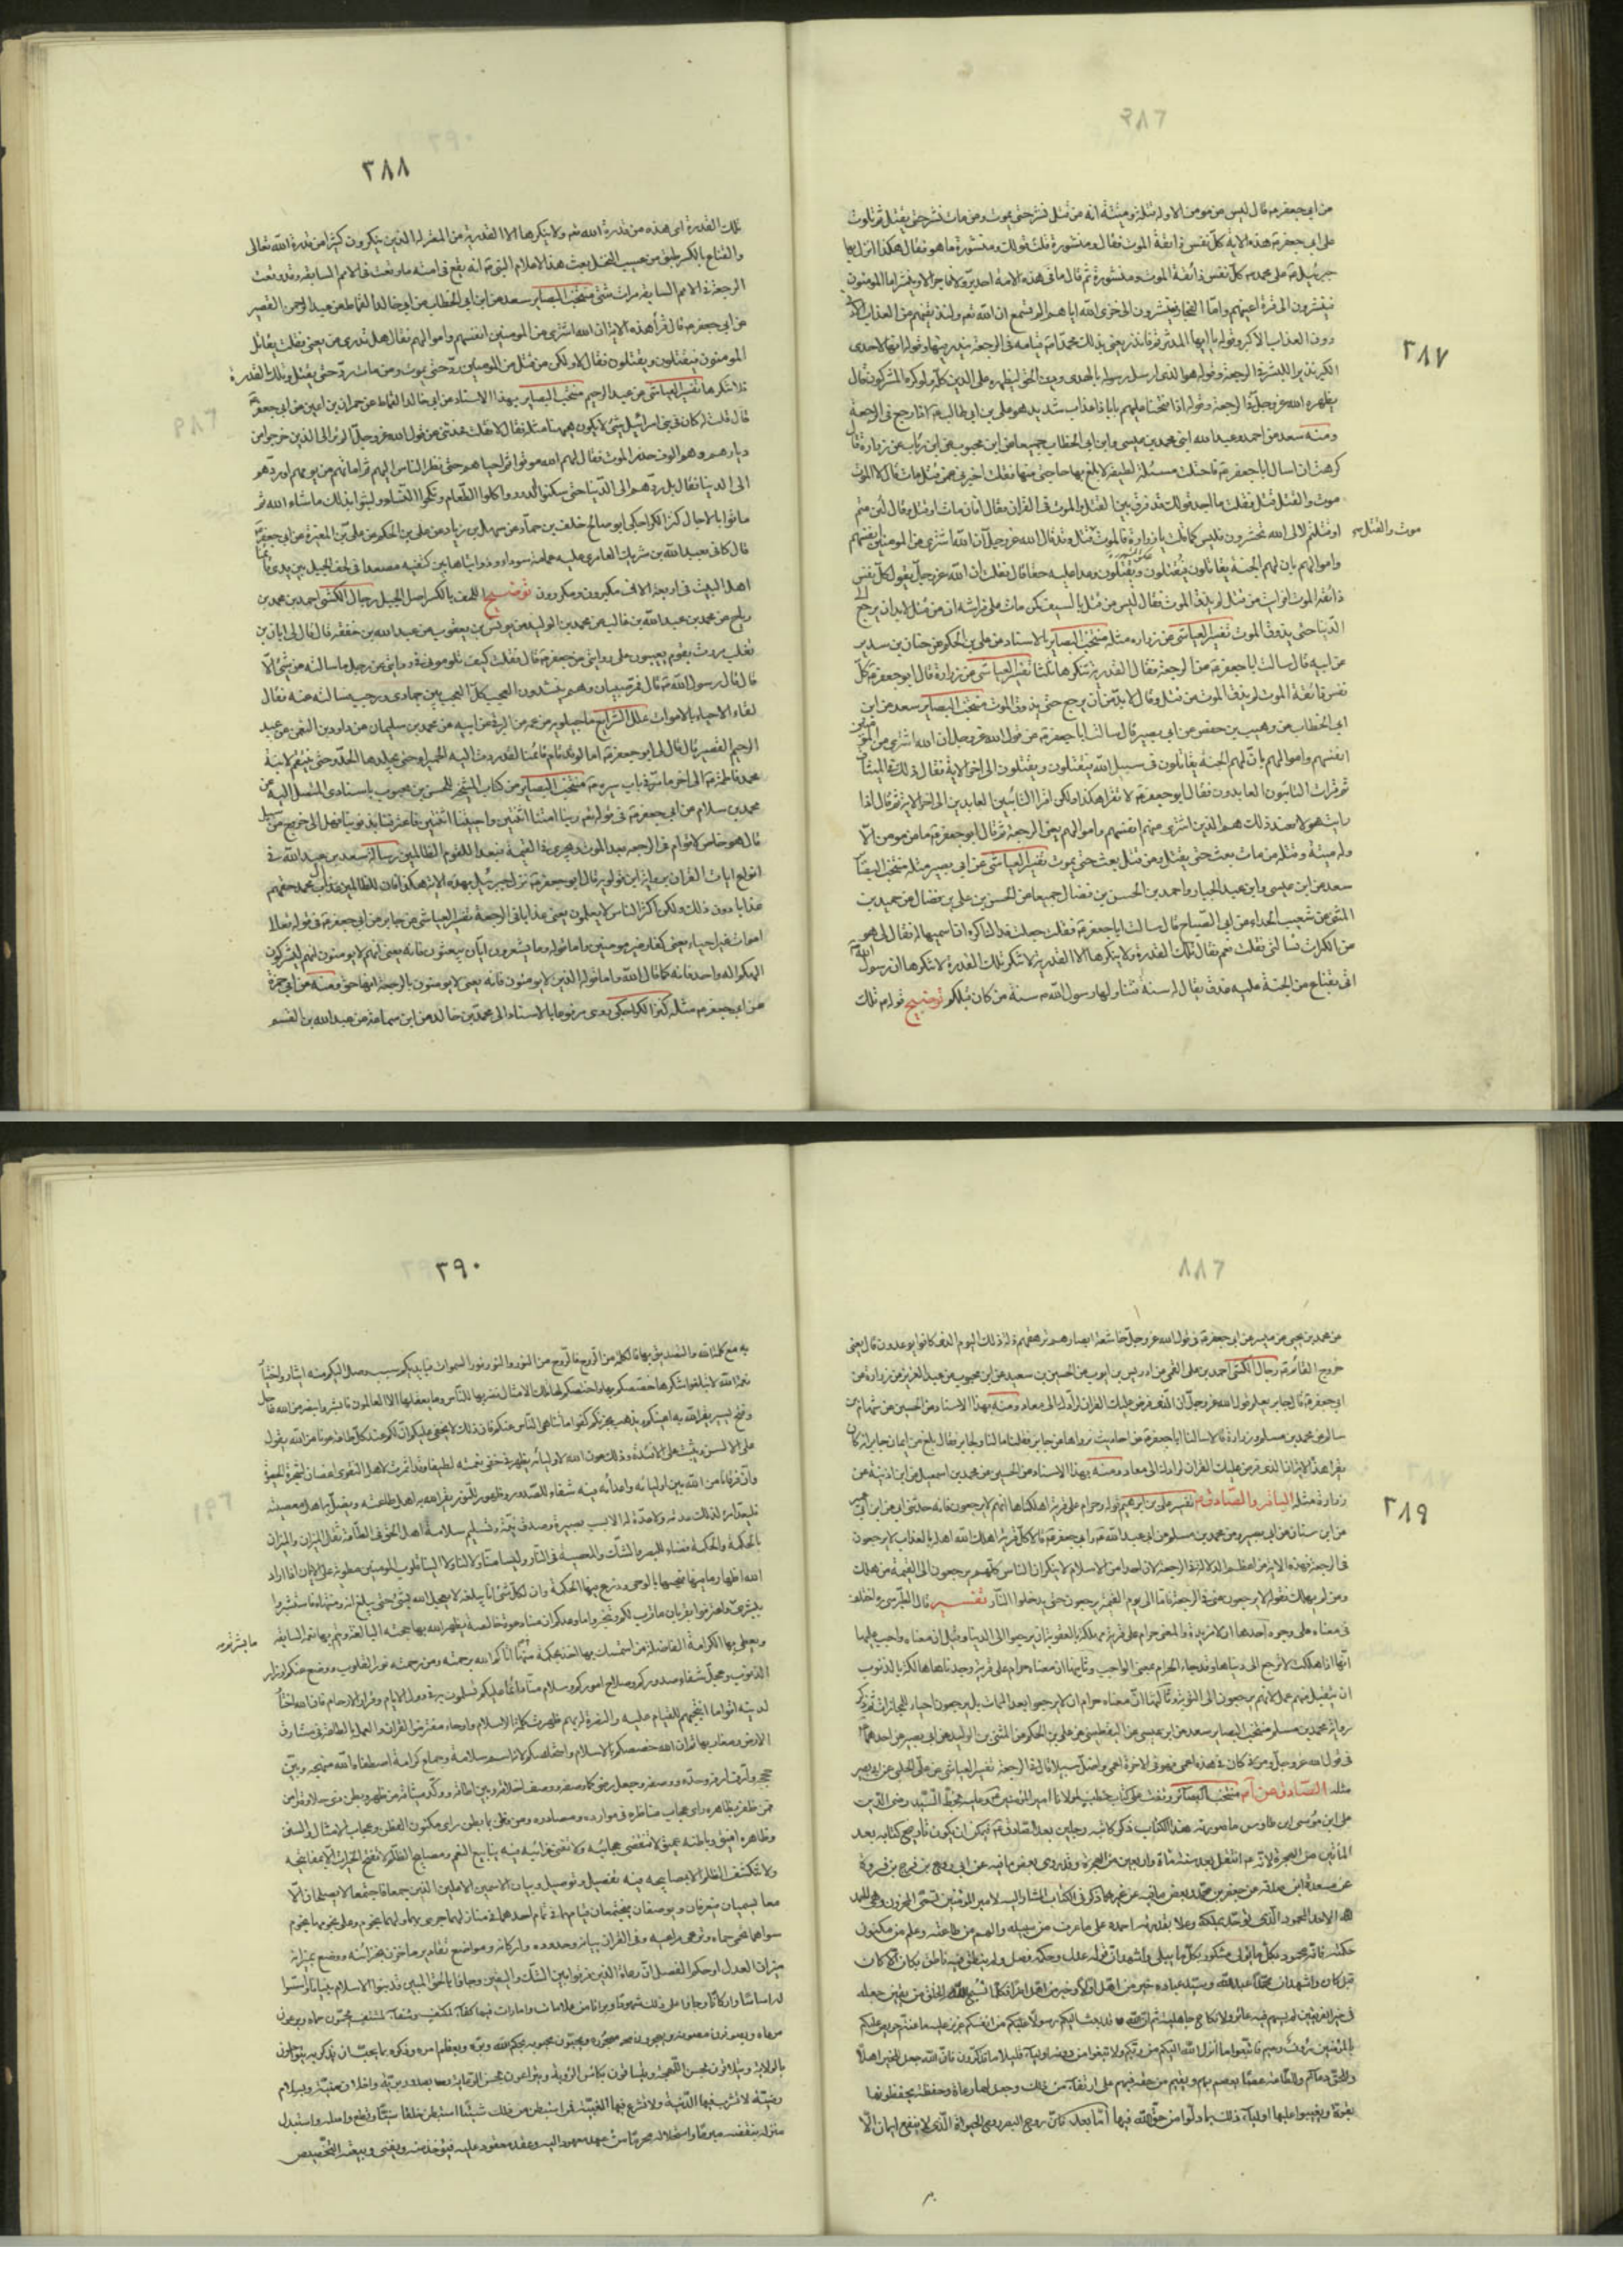 ٣٨٧
من ابي جعفر ع قال ليس من مومن الا وله قتلة وميتة انه من قتل نشر حتى يموت ومن مات نشر حتى يقتل ثم تلوت
على ابي جعفر ع هذه الاية كل نفس ذائقة الموت فقال ومنشورة قلت قولك ومنشورة ما هو فقال هكذا انزل بها
جبرئيل ع على محمد ص كل نفس ذائقة الموت ومنشورة ثم قال ما في هذه الامة احد بر ولا فاجر الا وينشر اما المومنون
فينشرون الى قرة اعينهم واما الفجار فينشرون الى خزي الله اياهم الم تسمع ان الله تعم ولنذيقنهم من العذاب الادنى
دون العذاب الاكبر وقوله يا ايها المدثر قم فانذر يعني بذلك محمدا ص قيامه في الرجعة ينذر فيها وقوله انها لاحدى
الكبر نذيرا للبشر في الرجعة وقوله هو الذي ارسل رسوله بالهدى ودين الحق ليظهره على الدين كله ولو كره المشركون قال
يظهره الله عز وجل في الرجعة وقوله اذا فتحنا عليهم بابا ذا عذاب شديد هو علي بن ابي طالب ع اذا رجع في الرجعة
ومنه سعد عن احمد وعبد الله ابني محمد بن عيسى وابن ابي الخطاب جميعا عن ابن محبوب عن ابن رئاب عن زرارة قال
كرهت ان اسال ابا جعفر ع فاحتلت مسئلة لطيفة لابلغ بها حاجتي منها فقلت اخبرني عمن قتل مات قال لا الموت
موت والقتل قتل فقلت ما اجد قولك قد فرق بين القتل والموت في القران فقال افان مات او قتل وقال لئن متم
او قتلتم لالى الله تحشرون فليس كما قلت يا زرارة فالموت موت والقتل قتل وقد قال الله عز وجل ان الله اشترى من المومنين انفسهم
واموالهم بان لهم الجنة يقاتلون فيقتلون ويقتلون وعدا عليه حقا قال فقلت ان الله عز وجل يقول كل نفس
ذائقة الموت افرايت من قتل لم يذق الموت فقال ليس من قتل بالسيف كمن مات على فراشه ان من قتل لا بد ان يرجع الى
الدنيا حتى يذوق الموت تفسير العياشي عن زرارة مثله منتخب البصاير بالاسناد عن علي بن الحكم عن حنان بن سدير
عن ابيه قال سالت ابا جعفر ع عن الرجعة فقال القدرية تنكرها ثلثا تفسير العياشي عن زرارة قال ابو جعفر ع كل
نفس ذائقة الموت لم يذق الموت من قتل وقال لا بد من ان يرجع حتى يذوق الموت منتخب البصاير سعد عن ابن
ابي الخطاب عن وهيب بن حفص عن ابي بصير قال سالت ابا جعفر ع عن قول الله عز وجل ان الله اشترى من المومنين
انفسهم واموالهم بان لهم الجنة يقاتلون في سبيل الله فيقتلون ويقتلون الى اخر الاية فقال ذلك في الميثاق
ثم قرات التائبون العابدون فقال ابو جعفر ع لا تقرا هكذا ولكن اقرا التائبين العابدين الى اخر الاية ثم قال اذا
رايت هولاء فعند ذلك هم الذين اشترى منهم انفسهم واموالهم يعني الرجعة ثم قال ابو جعفر ع ما من مومن الا
وله ميتة وقتلة من مات بعث حتى يقتل ومن قتل بعث حتى يموت تفسير العياشي عن ابي بصير مثله منتخب البصائر
سعد عن ابن عيسى وابن عبد الجبار واحمد بن الحسن بن فضال جميعا عن الحسن بن علي بن فضال عن حميد بن
المثنى عن شعيب الحذاء عن ابي الصباح قال سالت ابا جعفر ع فقلت جعلت فداك اكره ان اسميها له فقال لي هو
عن الكرات تسالني فقلت نعم فقال تلك القدرة ولا ينكرها الا القدرية لا تنكر تلك القدرة لا تنكرها ان رسول الله ص
اتي بقناع من الجنة عليه عذق يقال له سنة فتناولها رسول الله ص سنة من كان قبلكم توضيح قوله ع تلك
موت والقتل
٣٨٨
تلك القدرة اي هذه من قدرة الله تعم ولا ينكرها الا القدرية من المعتزلة الذين ينكرون كثيرا من قدرة الله تعالى
والقناع بالكسر طبق من عسيب النخل وبعث هذا لاعلام النبي ص انه يقع في امته ما وقعت في الامم السابقة وقد وقعت
الرجعة في الامم السابقة مرات شتى منتخب البصاير سعد عن ابن ابي الخطاب عن ابي خالد القماط عن عبد الرحمن القصير
عن ابي جعفر ع قال قرا هذه الاية ان الله اشترى من المومنين انفسهم واموالهم فقال هل تدري من يعني فقلت يقاتل
المومنون فيقتلون ويقتلون فقال لا ولكن من قتل من المومنين رد حتى يموت ومن مات رد حتى يقتل وتلك القدرة
فلا تنكرها تفسير العياشي عن عبد الرحيم منتخب البصاير بهذا الاسناد عن ابي خالد القماط عن حمران بن اعين عن ابي جعفر ع
قال قلت له كان في بني اسرائيل شئ لا يكون ههنا مثله فقال لا فقلت فحدثني عن قول الله عز وجل الم تر الى الذين خرجوا من
ديارهم وهم الوف حذر الموت فقال لهم الله موتوا ثم احياهم حتى نظر الناس اليهم ثم اماتهم من يومهم او ردهم
الى الدنيا فقال بل ردهم الى الدنيا حتى سكنوا الدور واكلوا الطعام ونكحوا النساء ولبثوا بذلك ما شاء الله ثم
ماتوا بالاجال كنز الكراجكي ابو صالح خلف بن حماد عن سهل بن زياد عن علي بن الحكم عن علي بن المغيرة عن ابي جعفر ع
قال كاني بعبد الله بن شريك العامري عليه عمامة سوداء وذوابتاها بين كتفيه مصعدا في لحف الجبل بين يدي قائمنا
اهل البيت في اربعة الاف مكبرون ومكرورن توضيح اللحف بالكسر اصل الجبل رجال الكشي احمد بن محمد بن
رباح عن محمد بن عبد الله بن غالب عن محمد بن الوليد عن يونس بن يعقوب عن عبد الله بن خفقة قال قال لي ابان بن
تغلب مررت بقوم يعيبون علي روايتي عن جعفر ع قال فقلت كيف تلوموني في روايتي عن رجل ما سالته عن شئ الا
قال قال رسول الله ص قال فمر صبيان وهم ينشدون العجب كل العجب بين جمادى ورجب فسالته عنه فقال
لقاء الاحياء بالاموات علل الشرايع ماجيلويه عن عمه عن البرقي عن ابيه عن محمد بن سليمان عن داود بن النعمان عن عبد
الرحيم القصير قال قال لي ابو جعفر ع اما لو قد قام قائمنا لقد ردت اليه الحميراء حتى يجلدها الحد وحتى ينتقم لابنة
محمد فاطمة ع الى اخر ما مر في باب سيره ع منتخب البصاير من كتاب المشيخة للحسن بن محبوب باسنادي المتصل اليه عن
محمد بن سلام عن ابي جعفر ع في قوله تعم ربنا امتنا اثنتين واحييتنا اثنتين فاعترفنا بذنوبنا فهل الى خروج من سبيل
قال هو خاص لاقوام في الرجعة بعد الموت ويجري في القيمة فبعدا للقوم الظالمين رسالة سعد بن عبد الله في
انواع ايات القران برواية ابن قولويه قال ابو جعفر ع نزل جبرئيل بهذه الاية هكذا فان للظالمين ال محمد حقهم
عذابا دون ذلك ولكن اكثر الناس لا يعلمون يعني عذابا في الرجعة تفسير العياشي عن جابر عن ابي جعفر ع في قوله تعالى
اموات غير احياء يعني كفار غير مومنين واما قوله وما يشعرون ايان يبعثون فانه يعني انهم لا يومنون انهم يشركون
الهكم اله واحد فانه كما قال الله واما قوله الذين لا يومنون فانه يعني لا يومنون بالرجعة انها حق ومنه عن ابي حمزة
عن ابي جعفر ع مثله كنز الكراجكي روى مرفوعا بالاسناد الى محمد بن خالد عن ابن سماعة عن عبد الله بن القسم
٣٨٩
عن محمد بن يحيى عن ميسر عن ابي جعفر ع في قول الله عز وجل خاشعة ابصارهم ترهقهم ذلة ذلك اليوم الذي كانوا يوعدون قال يعني
خروج القائم ع رجال الكشي احمد بن علي القمي عن ادريس بن ايوب عن الحسين بن سعيد عن ابن محبوب عن عبد العزيز عن زرارة عن
ابي جعفر ع قال جابر يعلم قول الله عز وجل ان الذي فرض عليك القران لرادك الى معاد ومنه بهذا الاسناد عن الحسين عن هشام بن
سالم عن محمد بن مسلم وزرارة قالا سالنا ابا جعفر ع عن احاديث نرواها عن جابر فقلنا ما لنا ولجابر فقال بلغ من ايمان جابر انه كان
يقرا هذه الاية ان الذي فرض عليك القران لرادك الى معاد ومنه بهذا الاسناد عن الحسين عن محمد بن اسمعيل عن ابن اذينة عن
زرارة مثله الباقر والصادق ع تفسير علي بن ابراهيم قوله وحرام على قرية اهلكناها انهم لا يرجعون فانه حدثني ابي عن ابن ابي عمير
عن ابن سنان عن ابي بصير وعن محمد بن مسلم عن ابي عبد الله ع وابي جعفر ع قالا كل قرية اهلك الله اهله بالعذاب لا يرجعون
في الرجعة فهذه الاية من اعظم الدلالة في الرجعة لان احدا من الاسلام لا ينكر ان الناس كلهم يرجعون الى القيمة من هلك
ومن لم يهلك فقوله لا يرجعون يعني في الرجعة فاما الى يوم القيمة يرجعون حتى يدخلوا النار تفسير قال الطبرسي ره اختلف
في معناه على وجوه احدها ان لا مزيدة والمعنى حرام على قرية مهلكة بالعقوبة ان يرجعوا الى الدنيا وقيل ان معناه واجب عليها
انها اذا هلكت لا ترجع الى دنياها وقد جاء الحرام بمعنى الواجب وثانيها ان معناه حرام على قرية وجدناها هالكة بالذنوب
ان يتقبل منهم عمل لانهم يرجعون الى التوبة وثالثها ان معناه حرام ان لا يرجعوا بعد الممات بل يرجعون احياء للمجازات ثم ذكر
رواية محمد بن مسلم منتخب البصاير سعد عن ابن عيسى عن اليقطيني عن علي بن الحكم عن المثنى بن الوليد عن ابي بصير عن احدهما ع
في قول الله عز وجل ومن كان في هذه اعمى فهو في الاخرة اعمى واضل سبيلا قال في الرجعة تفسير العياشي عن علي الحلبي عن ابي بصير
مثله الصادق عن آبائه ع منتخب البصاير وقفت على كتاب خطب لمولانا امير المومنين ع وعليه بخط السيد رضي الدين
علي بن موسى ابن طاوس ما صورته هذا الكتاب ذكر كاتبه رجلين بعد الصادق ع فيمكن ان يكون تاريخ كتابه بعد
المائتين من الهجرة لانه ع انتقل بعد سنة مائة واربعين من الهجرة وقد روى بعض ما فيه عن ابي روح بن فرج بن فروة
عن مسعدة ابن صدقة عن جعفر بن محمد وبعض ما فيه عن غيرهما ذكر في الكتاب المشار اليه لامير المومنين تسمى المخزون وهي الحمد
لله الاحد المحمود الذي توحد بملكه وعلا بقدرته احمده على ما عرف من سبيله والهم من طاعته وعلم من مكنون
حكمته فانه محمود بكل ما يولي مشكور بكل ما يبلي واشهد ان قوله عدل وحكمه فصل ولم ينطق فيه ناطق بكان الا كان
قبل كان واشهد ان محمدا عبد الله وسيد عباده خير من اهل اولا وخير من اهل اخرا فكلما نسج الله الخلق فريقين جعله
في خير الفريقين لم يسهم فيه عائر ولا نكاح جاهلية ثم ان الله قد بعث اليكم رسولا من انفسكم عزيز عليه ما عنتم حريص عليكم
بالمومنين رؤف رحيم فاتبعوا ما انزل الله اليكم من ربكم ولا تتبعوا من دونه اولياء قليلا ما تذكرون فان الله جعل للخير اهلا
وللحق دعائم وللطاعة عصما يعصم بهم ويقيم من حقه فيهم على ارتضاء من ذلك وجعل لها رعاة وحفظة يحفظونها
بقوة ويعينوا عليها اولياء ذلك بما ولوا من حق الله فيها اما بعد فان روح البصر روح الحيوة الذي لا ينفع ايمان الا
٣٩٠
به مع كلمة الله والتصديق بها فالكلمة من الروح والروح من النور والنور نور السموات فبايديكم سبب وصل اليكم منه ايثار واختيار
نعمة الله لا تبلغوا شكرها خصصكم بها واختصكم لها وتلك الامثال نضربها للناس وما يعقلها الا العالمون فابشروا بنصر من الله عاجل
وفتح يسير يقر الله به اعينكم ويذهب بحزنكم كفوا ما تناهى الناس عنكم فان ذلك لا يخفى عليكم ان لكم عند كل طاعة عونا من الله يقول
على الالسن ويثبت على الافئدة وذلك عون الله لاوليائه يظهر في خفي نعمته لطيفا وقد اثمرت لاهل التقوى اغصان شجرة الحيوة
وان فرقانا من الله بين اوليائه واعدائه فيه شفاء للصدور وظهور للنور يعز الله به اهل طاعته ويذل به اهل معصيته
فليعد امرء لذلك عدته ولا عدة له الا بسبب بصيرة وصدق نية وتسليم سلامة اهل الخفة في الطاعة ثقل الميزان والميزان
بالحكمة والحكمة فضاء للبصر والشك والمعصية في النار وليسا منا ولا لنا ولا الينا قلوب المومنين مطوية على الايمان اذا اراد
الله اظهار ما فيها فتحها بالوحي وزرع فيها الحكمة وان لكل شئ انا يبلغه لا يعجل الله بشئ حتى يبلغ اناه ومنتهاه فاستبشروا
ببشرى ما بشرتم واعترفوا بقربان ما قرب لكم وتنجزوا ما وعدكم ان منا دعوة خالصة يظهر الله بها حجته البالغة ويتم بها نعمه السابغة
ويعطي بها الكرامة الفاضلة من استمسك بها اخذ بحكمة منها اتاكم الله رحمته ومن رحمته نور القلوب ووضع عنكم اوزار
الذنوب وعجل شفاء صدوركم وصلاح اموركم وسلام منا دائما عليكم تسلمون به في دول الايام وقرار الارحام فان الله اختار
لدينه اقواما انتجبهم للقيام عليه والنصرة له بهم ظهرت كلمة الاسلام وارجاء مفترض القران والعمل بالطاعة في مشارق
الارض ومغاربها ثم ان الله خصصكم بالاسلام واستخلصكم له لانه اسم سلامة وجماع كرامة اصطفاه الله فنهجه وبين
حججه وارف ارفه وحده ووصفه وجعله رضى كما وصفه ووصف اخلاقه وبين اطباقه ووكد ميثاقه من ظهر وبطن ذي حلاوة وامن
فمن ظفر بظاهره راى عجائب مناظره في موارده ومصادره ومن فطن بما بطن راى مكنون الفطن وعجايب الامثال والسنن
فظاهره انيق وباطنه عميق لا تنقضي عجائبه ولا تفنى غرائبه فيه ينابيع النعم ومصابيح الظلم لا تفتح الخيرات الا بمفاتيحه
ولا تنكشف الظلم الا بمصابيحه فيه تفصيل وتوصيل وبيان الاسمين الاعلين الذين جمعا فاجتمعا لا يصلحان الا
معا يسميان فيعرفان ويوصفان فيجتمعان قيامهما في تمام احدهما في منازلهما جرى بهما ولهما نجوم وعلى نجومهما نجوم
سواهما تحمى حماه وترعى مراعيه وفي القران بيانه وحدوده واركانه ومواضع تقادير ما خزن بخزائنه ووزن بميزانه
ميزان العدل وحكم الفصل ان رعاة الدين فرقوا بين الشك واليقين وجاؤا بالحق المبين قد بينوا الاسلام تبيانا واسسوا
له اساسا واركانا وجاؤا على ذلك شهودا وبرهانا من علامات وامارات فيها كفاء لمكتف وشفاء لمشتف يحمون حماه ويرعون
مرعاه ويصونون مصونه ويهجرون مهجوره ويحبون محبوبه بحكم الله وبره وبعظيم امره وذكره بما يجب ان يذكر به يتواصلون
بالولاية ويتلاقون بحسن اللهجة ويتساقون بكاس الروية ويتراعون بحسن الرعاية بصدور برية واخلاق سنية وبسلام
رضية لا تشرب فيها الدنية ولا تشرع فيها الغيبة فمن استبطن من ذلك شيئا استبطن خلقا سنيا وقطع اصله واستبدل
منزله بنقضه مبرما واستحلاله محرما من عهد معهود اليه وعقد معقود عليه
ما بشرتم